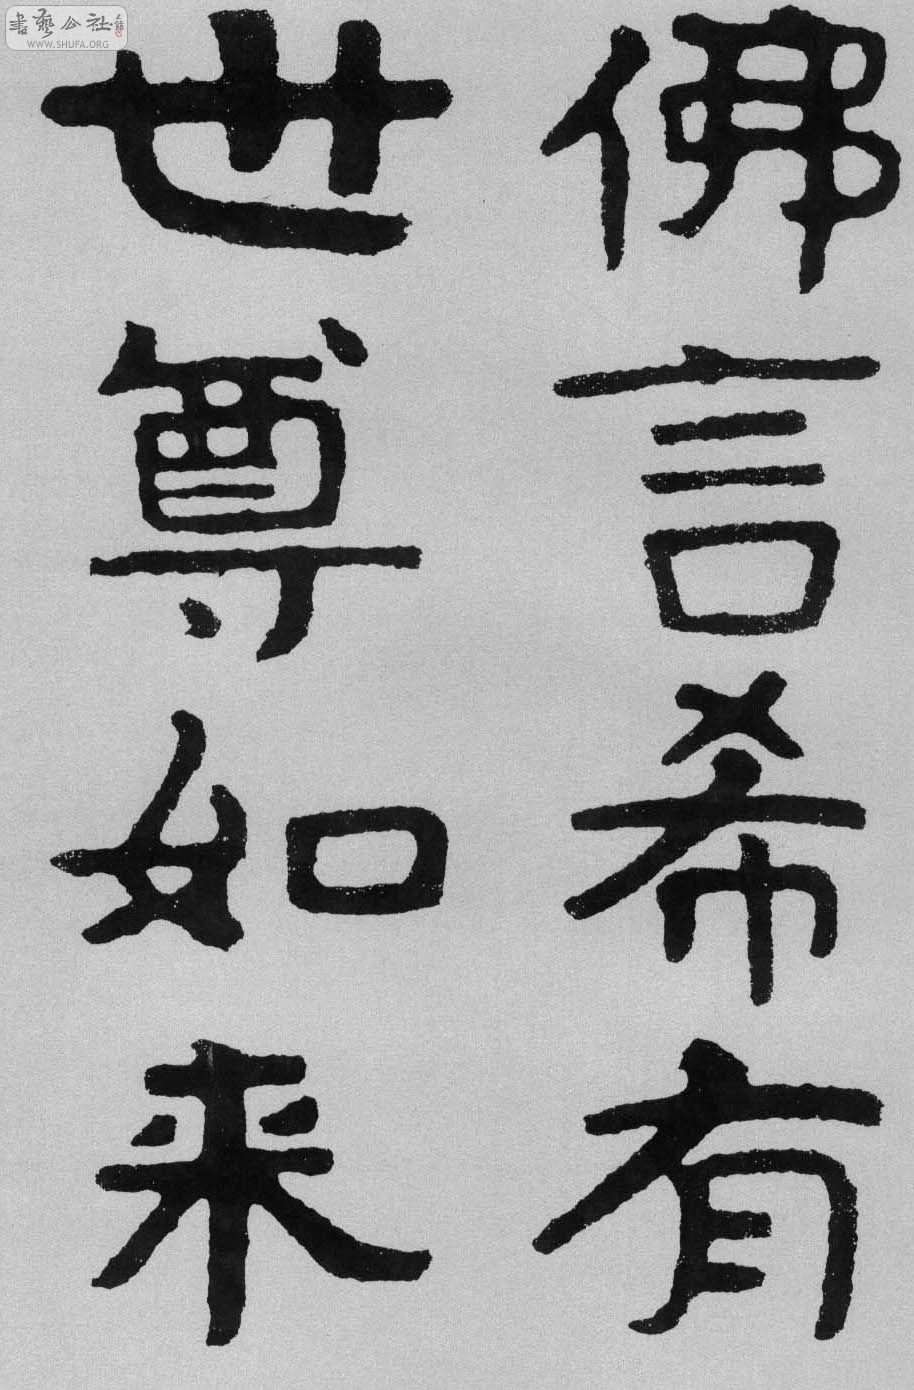 佛言希有
世尊如来
書藝公社
WWW.SHUFA.ORG